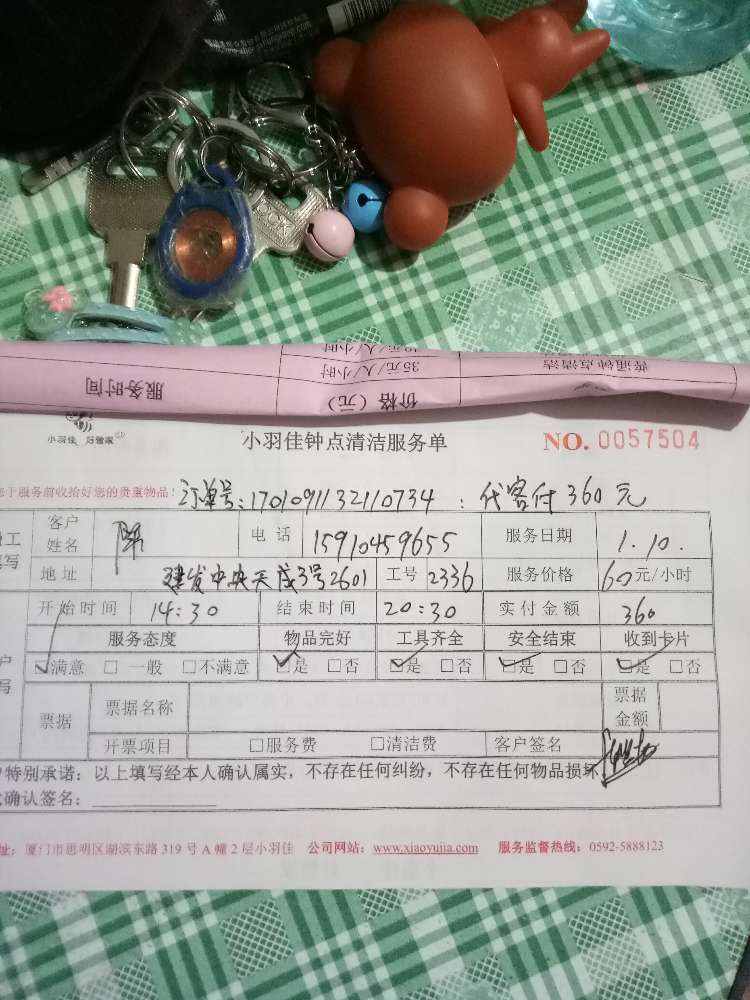 10元/人/小时
35元/人/小时 普通钟点清洁
服务时间 价格（元）
小羽佳 好雅家
小羽佳钟点清洁服务单 NO. 0057504
您于服务前收拾好您的贵重物品！ 订单号:1701091132110734 : 代客付360元
客户姓名 陈 电 话 15910459655 服务日期 1.10.
地址 建发中央天成3号2601 工号 2336 服务价格 60元/小时
开始时间 14:30 结束时间 20:30 实付金额 360
服务态度 物品完好 工具齐全 安全结束 收到卡片
☑满意 □ 一般 □不满意 ☑是 □否 ☑是 □否 ☑是 □否 ☑是 □否
票据 票据名称 票据金额
开票项目 □服务费 □清洁费 客户签名
特别承诺：以上填写经本人确认属实，不存在任何纠纷，不存在任何物品损坏
确认签名：
址：厦门市思明区湖滨东路 319 号 A 幢 2 层小羽佳 公司网站：www.xiaoyujia.com 服务监督热线：0592-5888123